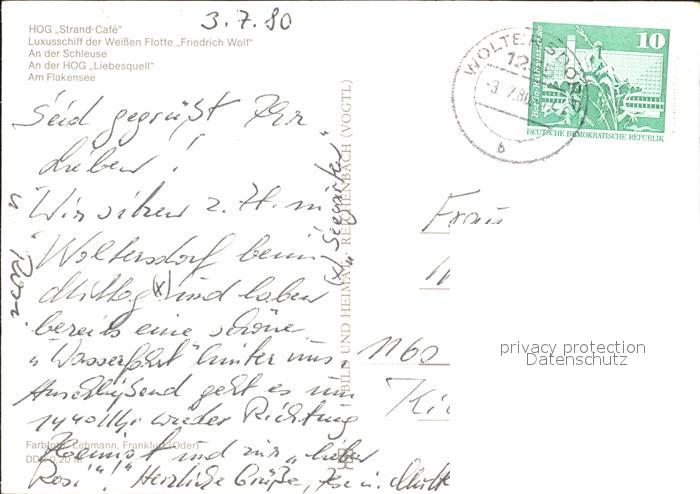 3.7.80
HOG „Strand-Café"
Luxusschiff der Weißen Flotte „Friedrich Wolf"
An der Schleuse
An der HOG „Liebesquell"
Am Flakensee
Seid gegrüßt Ihr
Lieben!
Wir sitzen z. Zt. in
Woltersdorf beim
Mittag (x) und haben
bereits eine schöne
„Wasserfahrt" hinter uns
Anschließend geht es um
14 40 Uhr wieder Richtung
und zur „lieben
Rosi"! Herzliche Grüße,
(x) „Seegarten"
BILD UND HEIMAT REICHENBACH (VOGTL)
Farbfoto: Lehmann, Frankfurt (Oder)
DDR 0,20 M
WOLTERSDORF
-3.7.80
b
10
DEUTSCHE DEMOKRATISCHE REPUBLIK
Frau
1160
privacy protection
Datenschutz